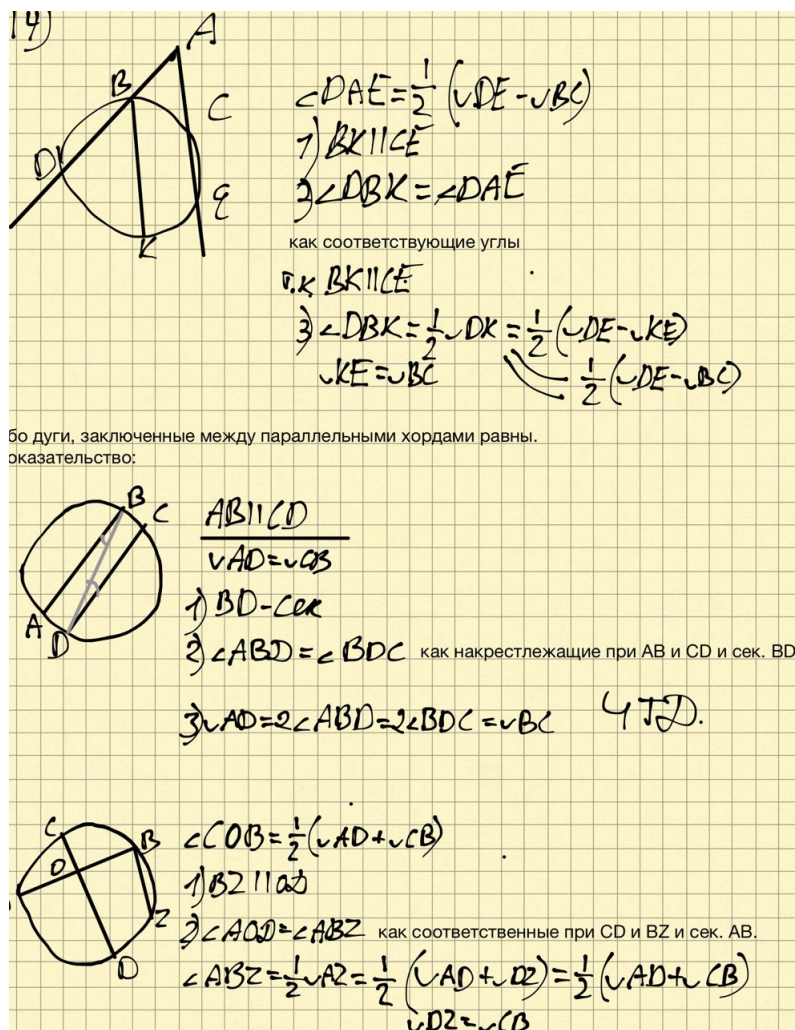 14)
A
B
C
D
E
K
∠DAE=½(◡DE-◡BC)
1) BK||CE
2) ∠DBK=∠DAE
как соответствующие углы
т.к BK||CE
3) ∠DBK=½◡DK=½(◡DE-◡KE)
◡KE=◡BC ½(◡DE-◡BC)
бо дуги, заключенные между параллельными хордами равны.
оказательство:
B
C
A
D
AB||CD
◡AD=◡CB
1) BD-сек
2) ∠ABD=∠BDC как накрестлежащие при AB и CD и сек. BD
3) ◡AD=2∠ABD=2∠BDC=◡BC ЧТД.
C
B
O
Z
D
∠COB=½(◡AD+◡CB)
1) BZ||OD
2) ∠AOD=∠ABZ как соответственные при CD и BZ и сек. AB.
∠ABZ=½◡AZ=½(◡AD+◡DZ)=½(◡AD+◡CB)
◡DZ=◡CB